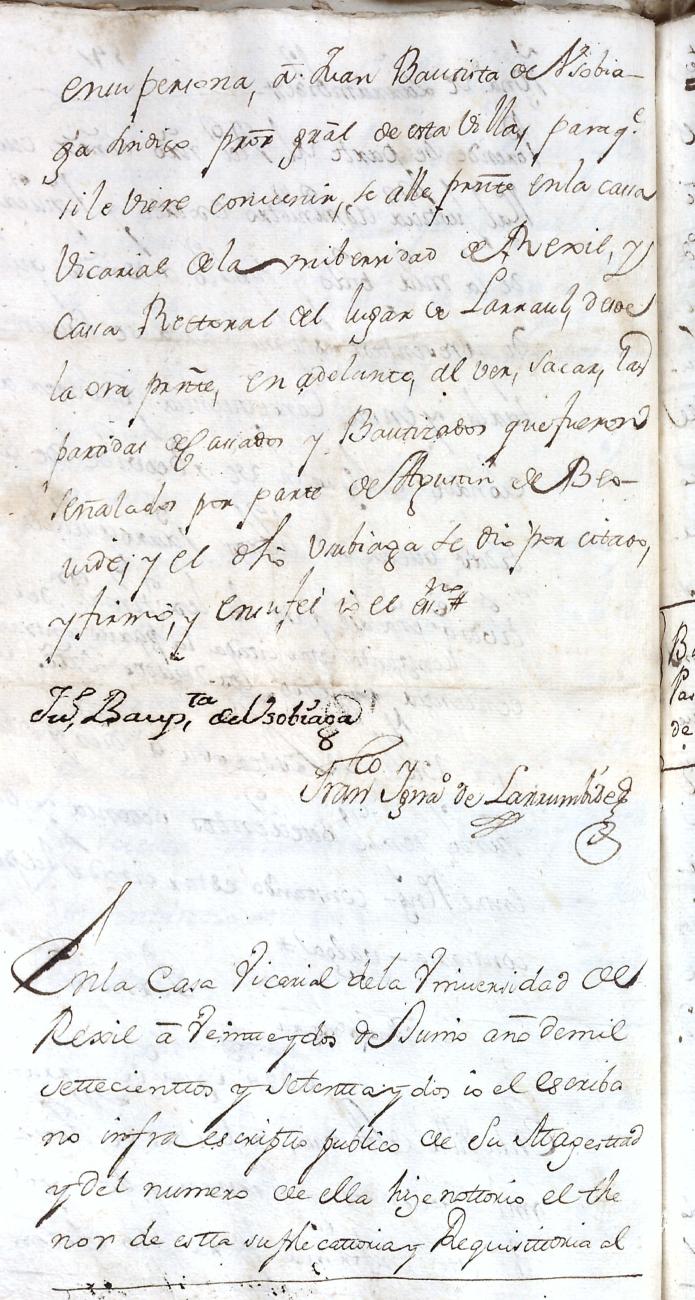 en su persona, â Juan Bautista de Usobia-
ga sindico prõr grãl de esta Villa, para q.e
si le viere convenir, se alle prñte en la casa
Vicarial de la unibersidad de Rexil, y
Cassa Rectoral del lugar de Larraul, desde
la ora prñte, en adelante, al ver, sacar, las
partidas de Cassados y Bautizados que fueron
señalados por parte de Agustin de Beo-
vide; y el dhõ Usubiaga se dio por citado,
y firmó, y en su feé io el ess.no
Ju.n Baup.ta de Usobiaga
Fran.co Ygna.o de Larrumbide
En la Casa Vicarial de la Vniversidad de
Rexil â Veinte y dos de Junio año de mil
settecienttos y settentta y dos io el escriba
no infra escriptto publico de Su Magesttad
y del numero de ella hize nottorio el the
nor de estta suplicattoria y Requisittoria al
Ba
Pa
de